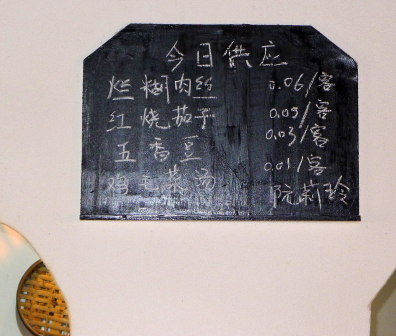 今日供应
烂糊肉丝 0.06/客
红烧茄子 0.05/客
五香豆 0.03/客
鸡毛菜汤 0.01/客
阮莉玲